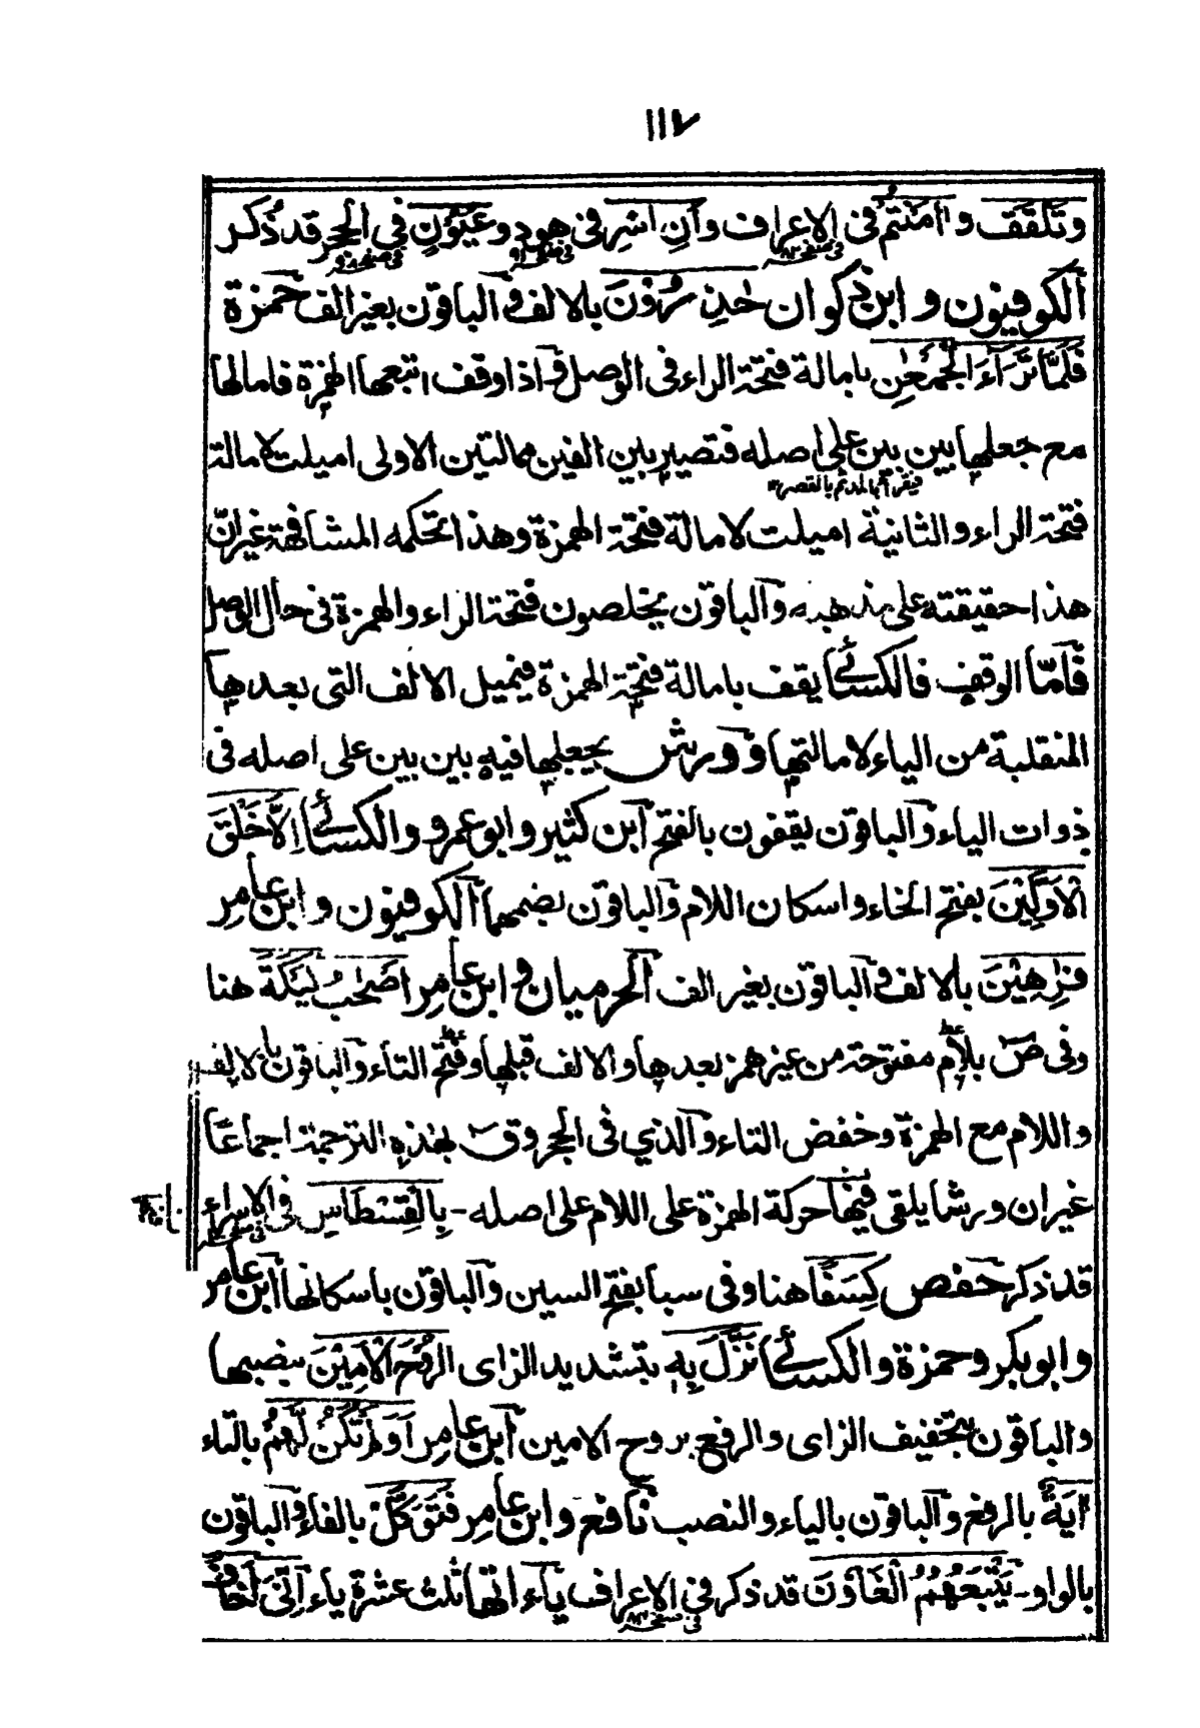 ١١٧
وتَلَقَّفُ وءاٰمَنْتُمْ فى الاعراف وأَنِ اَسْرِ فى هود وعُيُوْنٍ فى الحجر قد ذُكر
فى صفحه ٨٢ فى صفحه ٩١ فى صفحه ٩٠
الكوفيون وابن ذكوان حٰذِرُوْنَ بالالف والباقون بغير الف حمزة
فَلَمَّا تَرَآءَ الْجَمْعٰنِ بامالة فتحة الراء فى الوصل واذا وقف اتبعها الهمزة فامالها
مع جعلها بين بين على اصله فتصير بين الفين ممالتين الاولى اميلت لامالة
فيقرأ بالمد ثم بالقصر
فتحة الراء والثانية اميلت لامالة فتحة الهمزة وهذا تحكمه المشافهة غير انّ
هذا حقيقته على مذهبه والباقون يخلصون فتحة الراء والهمزة فى حال الوصل
فامّا الوقف فالكسائى يقف بامالة فتحة الهمزة فيميل الالف التى بعدها
المنقلبة من الياء لامالتها وورش يجعلها فيه بين بين على اصله فى
ذوات الياء والباقون يقفون بالفتح ابن كثير وابو عمرو والكسائى اِلَّا خَلْقُ
الْاَوَّلِيْنَ بفتح الخاء واسكان اللام والباقون بضمهما الكوفيون وابن عامر
فٰرِهِيْنَ بالالف والباقون بغير الف الحرميان وابن عامر اَصْحٰبُ لَيْكَةَ هنا
وفى صٓ بلام مفتوحة من غير همز بعدها والالف قبلها وفتح التاء والباقون بالالف
واللام مع الهمزة وخفض التاء والذي فى الحجر وقٓ بهذه الترجمة اجماعًا
غير ان ورشا يلقى فيهما حركة الهمزة على اللام على اصله - بِالْقِسْطَاسِ فى الاسراء
قد ذكر حفص كِسَفًا هنا وفى سبا بفتح السين والباقون باسكانها ابن عامر
وابو بكر وحمزة والكسائى نَزَّلَ بِهِ بتشديد الزاى الرُّوْحَ الْاَمِيْنَ بنصبهما
والباقون بتخفيف الزاى والرفع بروح الامين ابن عامر اَوَلَمْ تَكُنْ لَّهُمْ بالتاء
اٰيَةٌ بالرفع والباقون بالياء والنصب نافع وابن عامر فَتَوَكَّلْ بالفاء والباقون
بالواو - يَتْبَعُهُمُ الْغَاوٗنَ قد ذكر فى الاعراف ياء اتها ثلث عشرة ياء اِنِّىَ اَخَافُ
فى صفحه ٨٣